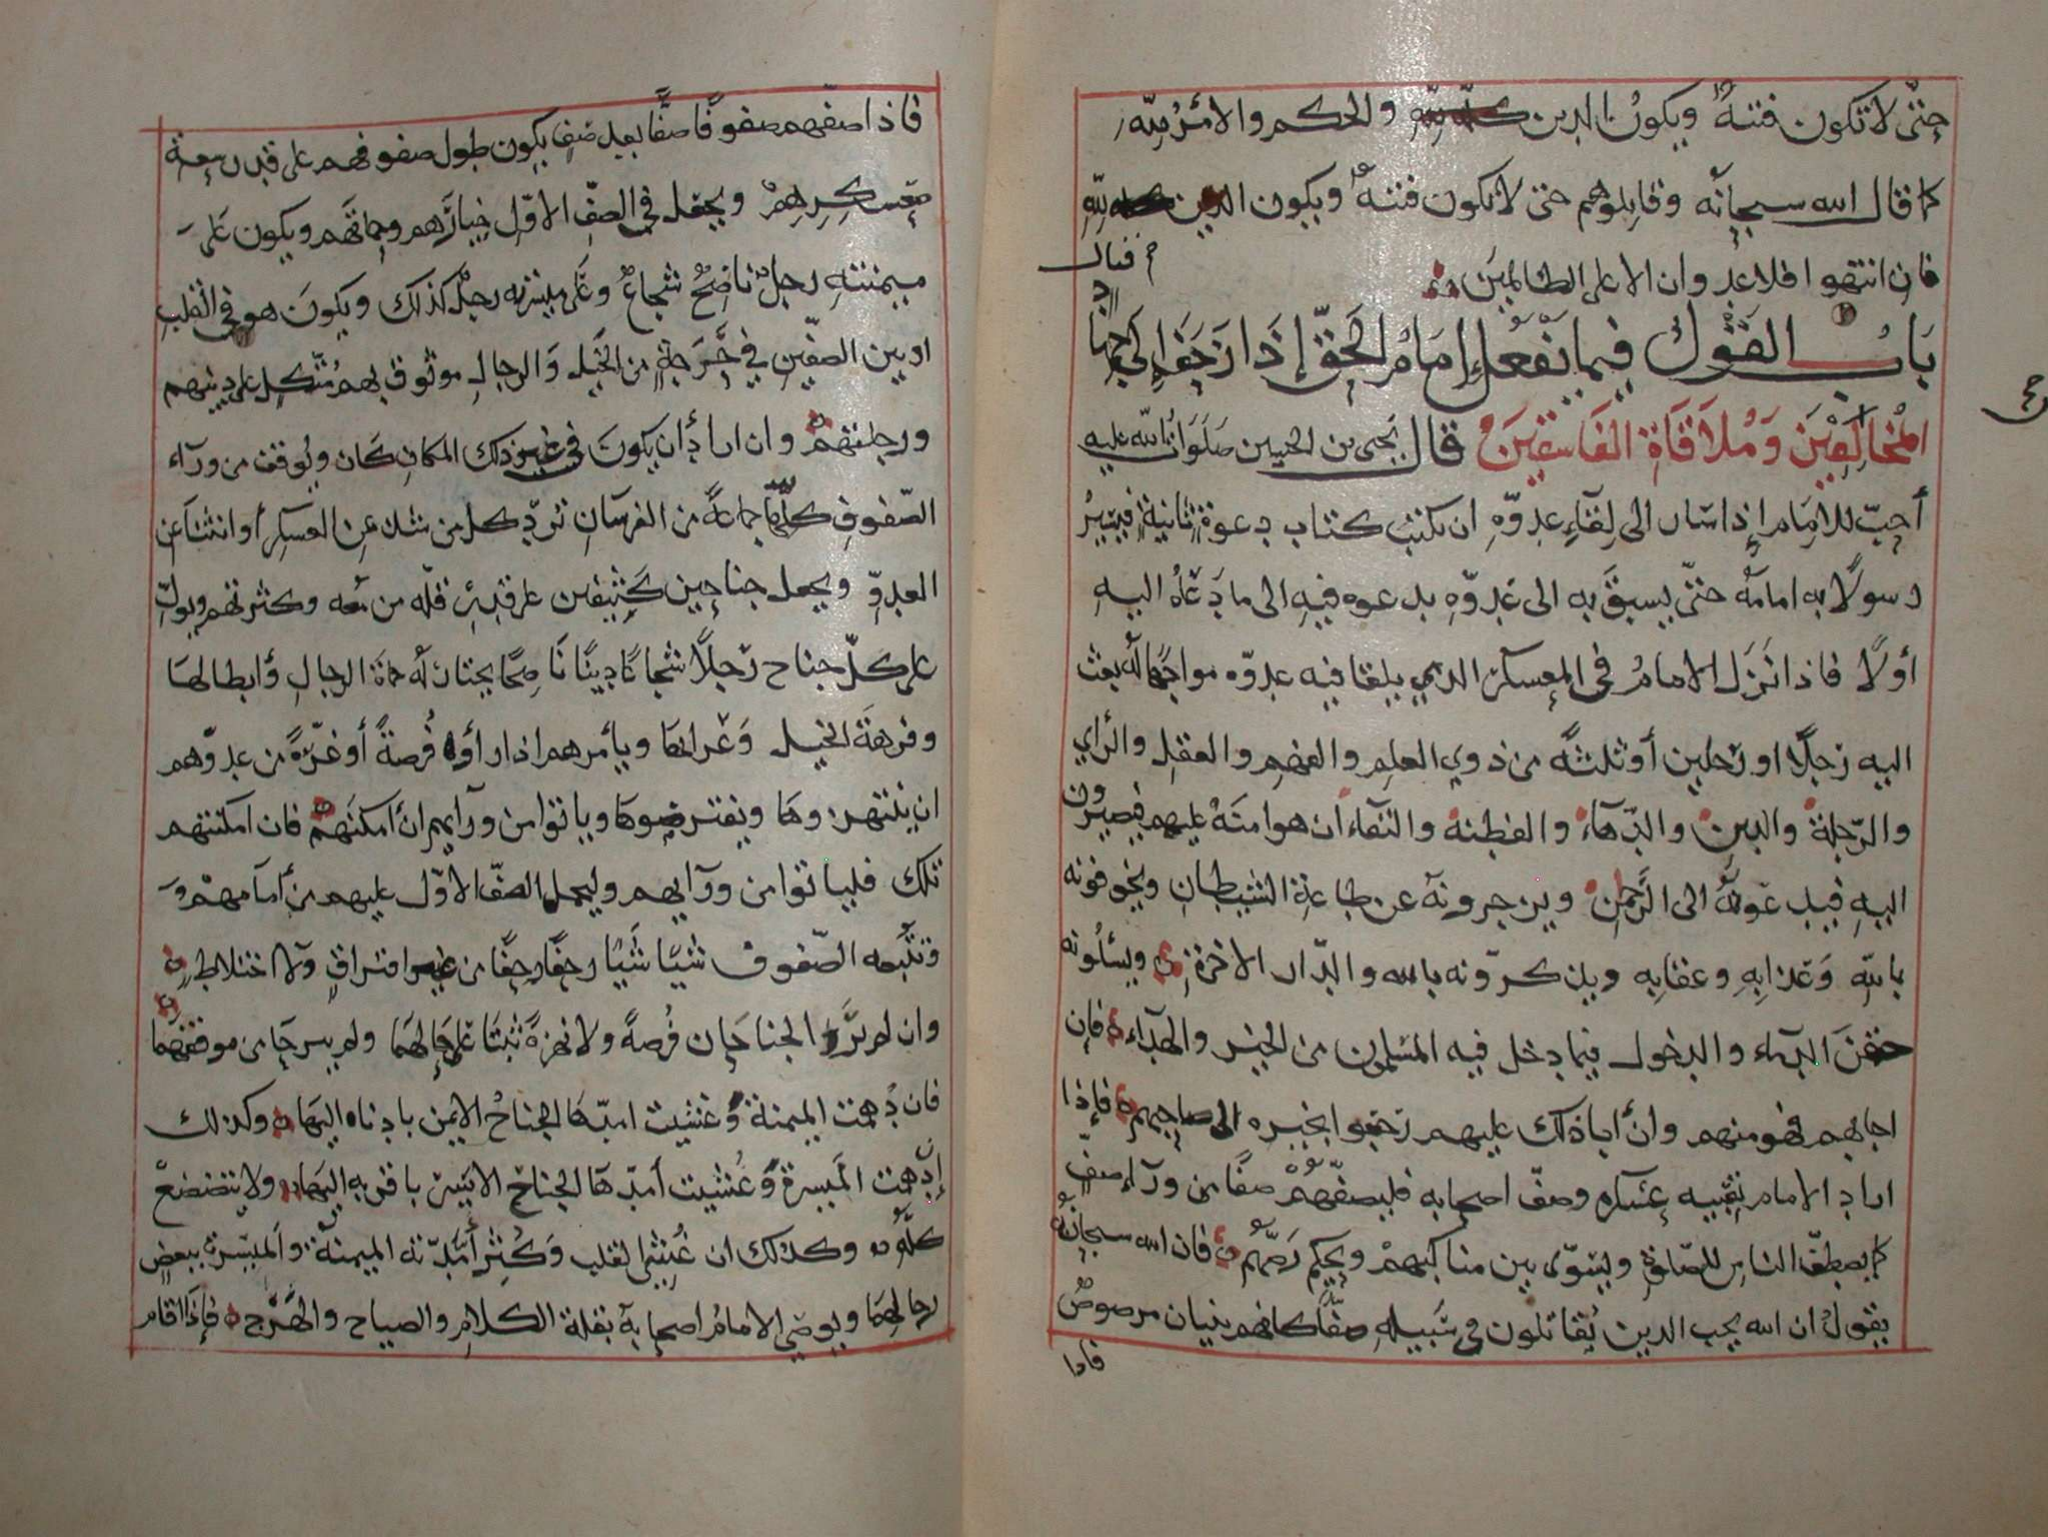 حتّى لا تكون فتنةٌ ويكونُ الدين لله والحكم والأمْرُ لِلّه
كما قال الله سبحانه وقاتلوهم حتى لا تكون فتنةٌ ويكون الدين لله
فان انتهوا فلا عدوان الا على الظالمِينَ
قتال
بَابُ القَوْل فِيما يَفْعَل إمَامُ الحَقّ إذَا زَحَفَ إلى
المُخَالِفِيْنَ وَمُلاَقَاةِ الفَاسِقِيْنَ قال يحيى بن الحسين صَلَوَاتُ الله عليه
أحِبّ للامَام إذا سَار الى لِقَآءِ عدوّهِ ان يكتب كتاب دعوةٍ ثانيةٍ فيسَيرُ
رسولاً به امامَهُ حتّى يسبقَ به الى عَدوّهِ يدعوه فيهِ الى ما دَعَاهُ اليهِ
أولاً فاذا نَزل الامامُ في المعسكر الذي يلقا فيه عدوّه مواجهًا له بعث
اليه رَجلاً او رَجلين أو ثلثةً من ذوي العلمِ والفهمِ والعقلِ والرأي
والرّجلةِ والدين والدّهآءِ والفطنه والتقاء ان هو امنَهُ عليهم فيصيرون
اليهِ فيدعُونَهُ الى الرّحمن ويزجرونَهُ عن طاعةِ الشيطان ويخوفونه
بالله وَعَذابِهِ وعقابِه ويذكرّونه بالله والدّار الاخرةِ ويسئلُونه
حقنَ الدمآء والدخول فيما دخل فيه المسْلمون من الخير والهدآء فإن
اجابهم فهو منهم وان أبا ذلك عليهم رَجَعوا بخبره الى صاحبهم فإذا
اراد الامام تعبيه عسْكره وصفّ اصحابه فليصفّهُمْ صفًّا من ورآءِ صفٍّ
كما يصطفّ الناس للصّلوةِ ويسَوّى بين مناكبهمْ ويحكم رَصّهُم فان الله سبحانُه
يقولُ ان الله يحب الذين يُقاتلون في سَبيلهِ صفًّا كانهم بنيان مرصوصٌ
فاذا
فاذا صفّهم صفوفًا صفًّا بعد صَفٍ يكون طول صفوفهم على قدر سعة
معسكرِهِمْ ويجعل في الصفّ الاوّل خيارَهم وحماتَهم ويكون عَلَى
ميمنتهِ رجلٌ نَاصِحٌ شجاعٌ وعَلى ميسرته رجلٌ كذلك ويكونَ هو في القلبِ
او بين الصفّين في حَرَجةٍ من الخَيل وَالرجال موثوق بهم مُتّكل على دينهم
ورجلتهمْ وان اراد أن يكونَ في غير ذلك المكان كَان ويُوقف من ورآء
الصّفوفِ كلّها جماعةً من الفرسَان تردّ كل من شذ عن العسكر أو انثنا عن
العدوِّ ويجعل جناحين كَثيفين على قدرِ قلّه من معه وكثرتهم ويولّ
على كلّ جناح رَجلاً شجاعًا دينًا نَاصِحًا يختار لَهُ حماة الرجال وَأبطالهَا
وفرهَة الخيل وَعْرابهَا ويأمرهم اذا رأوا فُرصةً أو غرّةً من عدوّهم
ان ينتهزوها ويفترصوها وياتوا من ورآيهم ان أمكنَهمْ فان امكنتهم
تلك فلياتوا من ورآيهم وليحمل الصفّ الاوّل عليهم من أمامهمْ وَ
وتتبعه الصّفوف شيئًا شَيئًا زحفًا زحفًا من غير افتراقٍ ولا اختلاطٍ
وان لم يَرَ الجناحَان فُرصةً ولا نهزةً ثبتَا على حَالهمَا ولم يبرحَا من موقفهما
فان دُهمت الميمنةُ وَغشيت امدّها الجناحُ الايمن بادناه اليهَا وكذلك
إن دهمت الميسرةُ وَغُشيت أمدّهَا الجناح الايسَر باقربه اليهَا ولا يتضعضعُ
كلّه وكذلك ان غُشي القلب وَكُثِر أمَدّته الميمنة والميسرة ببعض
رجالهمَا ويوصّي الامامُ اصحابَهُ بقلة الكلام والصياح والهَرَج فإذا اقام